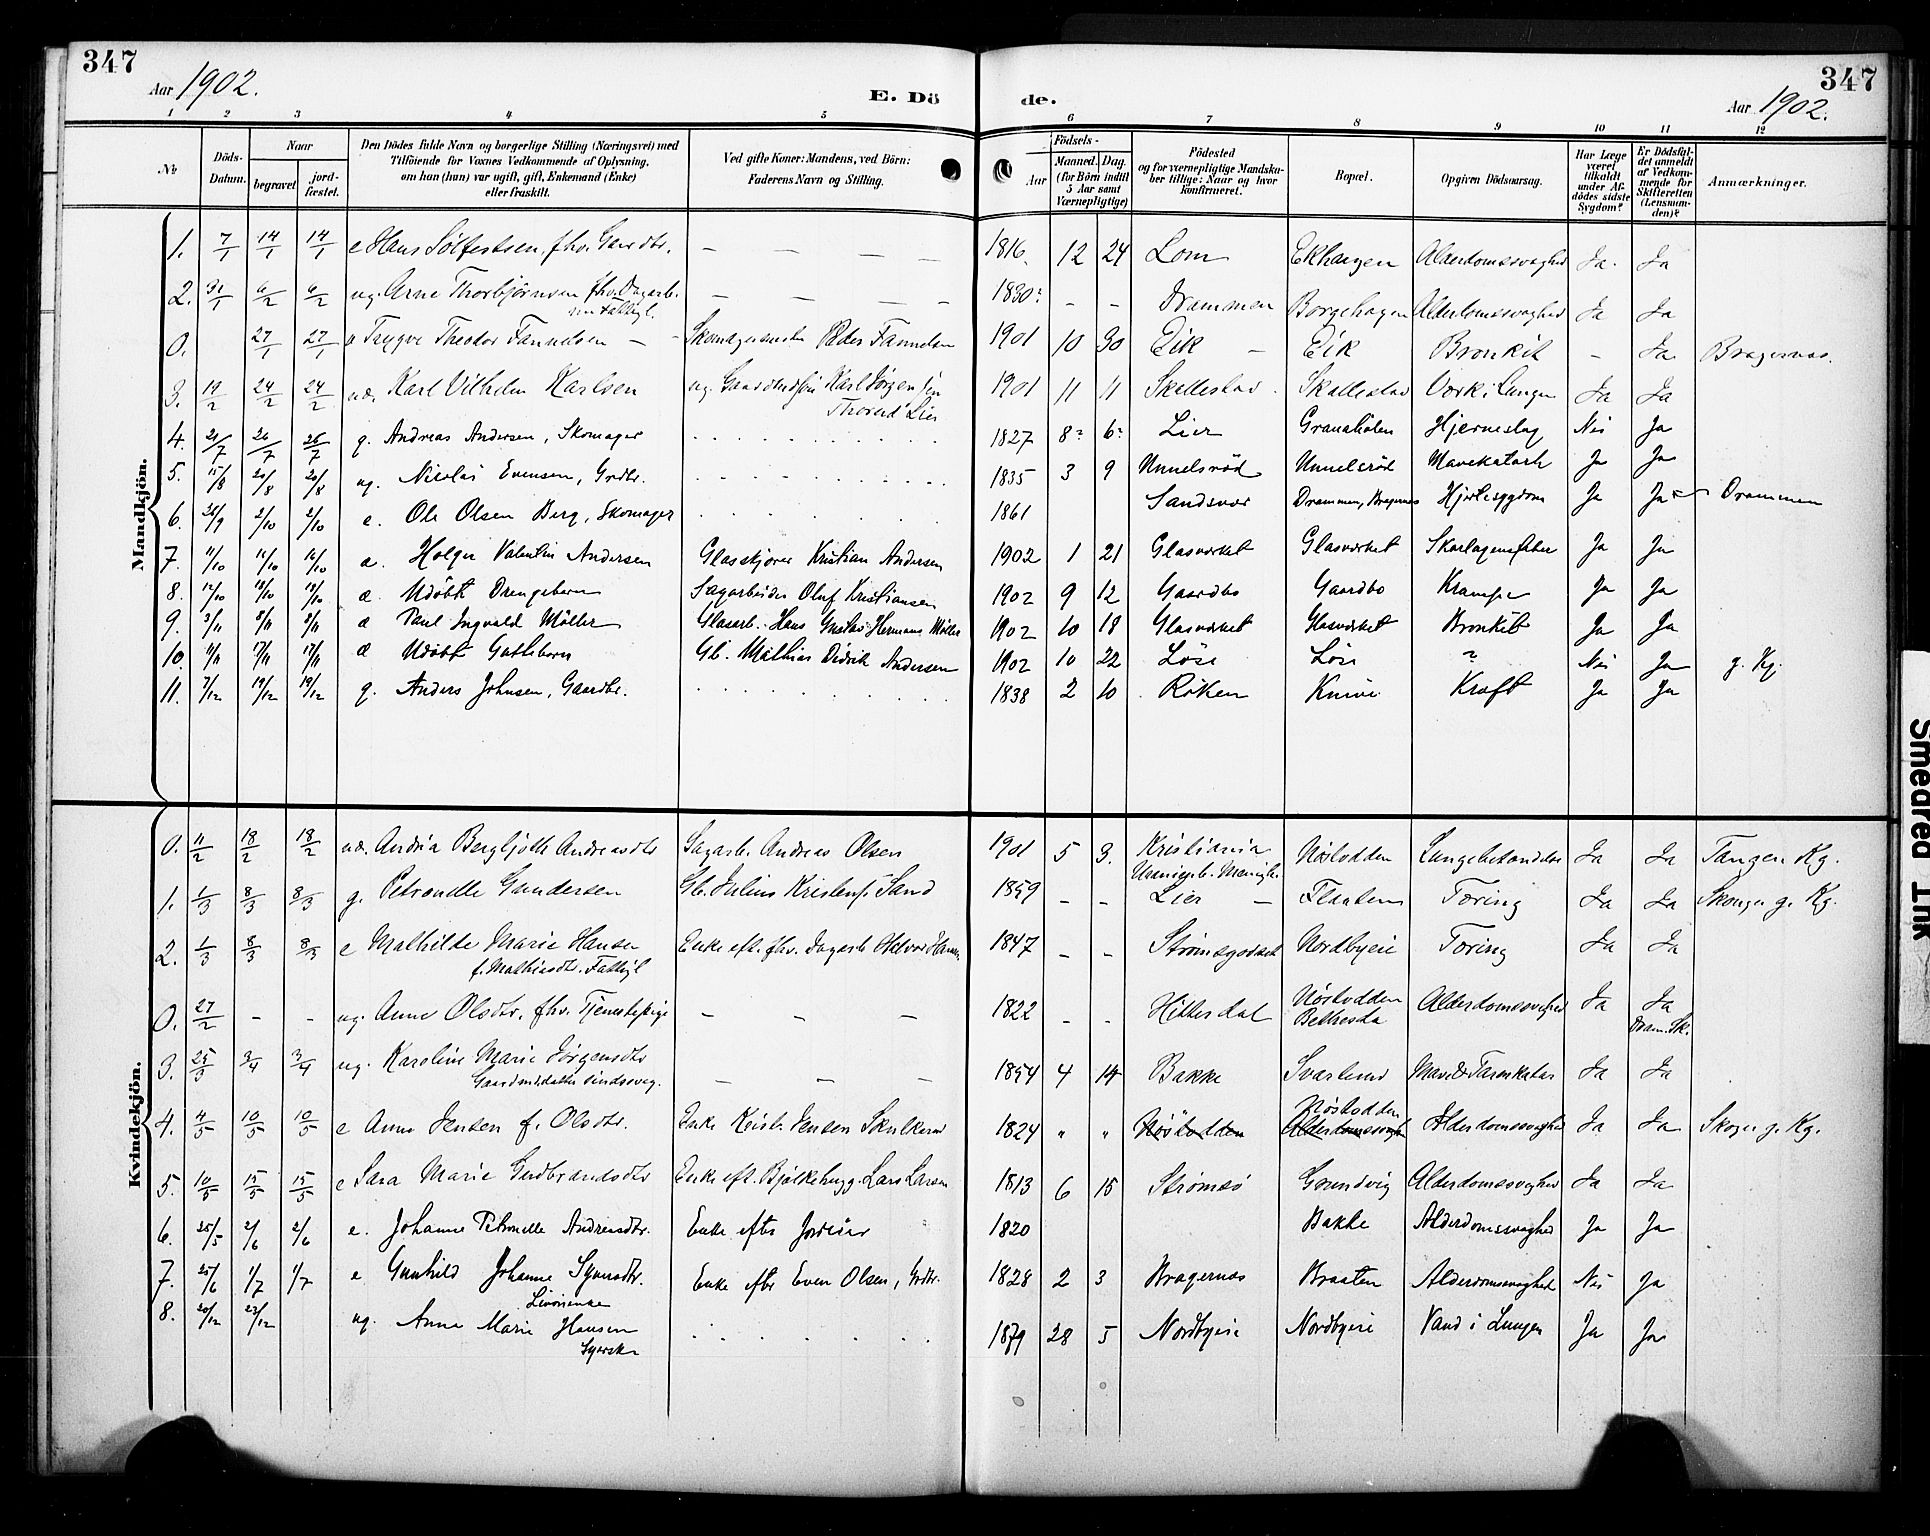 347
Aar 1902.
E. Dö
de.
Aar 1902.
347
1 2 3 4 5 6 7 8 9 10 11 12
No
Döds-
Datum.
Naar
begravet.
jord-
fæstet.
Den Dödes fulde Navn og borgerlige Stilling (Næringsvei) med
Tilföiende for Voxnes Vedkommende af Oplysning,
om han (hun) var ugift, gift, Enkemand (Enke)
eller fraskilt.
Ved gifte Koner: Mandens, ved Börn:
Faderens Navn og Stilling.
Födsels-
Aar
Maaned. Dag.
(for Börn indtil
5 Aar samt
Værnepligtige)
Födested
og for værnepligtige Mandska-
ber tillige: Naar og hvor
konfirmeret.
Bopæl.
Opgiven Dödsaarsag.
Har Læge
været
tilkaldt
under Af-
dödes sidste
Sygdom?
Er Dödsfal-
det anmeldt
af Vedkom-
mende for
Skifteretten
(Lensman-
den)?
Anmærkninger.
Mandkjön.
1. 7/1 14/1 14/1 e Hans Sölfestsen, fhv. Gaardbr. — — — — 1816. 12 24 Lom Ekhaugen Alderdomssvaghed Ja. Ja
2. 31/1 6/2 6/2 ug. Arne Thorbjørnsen fhv. Dagarb. — — — — 1830? - - Drammen Borgehagen Alderdomssvaghed Ja Ja
0. 27/1 27/1 Trygve Theodor Fannelsen — — Peder Fannelsen 1901 10 30 Eik — Eik Bronkit — Ja Bragernæs.
3. 19/2 24/2 24/2 uæ. Karl Vilhelm Karlsen ug. 1901 11 11 Skallestad Skallestad Værk i Lungen Ja Ja
Lier
4. 21/7 26/7 26/7 g. Andreas Andersen, Skomager 1827 8? 6? Lier Granaholen Hjerneslag Nei Ja
5. 15/8 20/8 20/8 ug. Nicolai Evensen, Grdbr. 1835 3 9 Unnelsröd Unnelsröd Mavekatarh Ja Ja
6. 26/9 2/10 2/10 e. Ole Olsen Berg, Skomager 1861 Sandsvær Drammen, Bragernes Hjertesygdom Ja Ja Drammen
7. 11/10 16/10 16/10 æ. Holger Valentin Andersen Glasskjærer Kristian Andersen 1902 1 21 Glasværket Glasværket Skarlagensfeber Ja Ja
8. 12/10 18/10 18/10 æ Udöbt Drengebarn Sagarbeider Oluf Kristiansen 1902 9 12 Gaardbo Gaardbo Krampe Ja Ja
9. 3/11 8/11 8/11 æ Paul Ingvald Möller Glasarb. Hans Gustav Hermans Möller 1902 10 18 Glasværket Glasværket Bronkit Ja Ja
10. 11/11 17/11 17/11 æ Udöbt Guttebarn Gb. Mathias Didrik Andersen 1902 10 22 Löse Löse ? Nei Ja g. Kg.
11. 7/12 19/12 19/12 g. Anders Johnsen, Gaardbr. 1838 2 10 Röken Knive Kræft Ja Ja
Kvindekjön.
0. 11/2 18/2 18/2 uæ. Andrea Bergljoth Andreasdtr Sagarb. Andreas Olsen 1901 5 3. Kristiania Nöstodden Lungebetændelse Ja Ja Tangen Kg.
1. 1/3 8/3 8/3 g. Petronelle Gundersen Gb. Julius Kristens. Sand 1859 - - Lier — Flaaten Tæring Ja Ja Skoger g. Kg.
2. 1/3 8/3 8/3 e Mathilde Marie Hansen Enke eft. fhv. Dagarb. Hansen 1847 - - Strømsgodset Nordbyeie Tæring Ja Ja
f. Mathiasdtr. Fattigl
0. 27/2 - - ug. Anne Olsdtr. fhv. Tjenestepige — — — 1822 - - Hitterdal Nöstodden Alderdomssvaghed Ja Ja
Bethesda Dram. Sk.
3. 25/3 3/4 3/4 ug. Karoline Marie Jørgensdtr — — — 1854 4 14 Bakke Svarterud Mave & Tarmkatar Ja Ja
Gaardmd.datter sindssvag.
4. 4/5 10/5 10/5 e Anne Jensen f. Olsdtr. Enke Jensen 1824 " " Nöstodden Alderdomssvagh Nöstodden Alderdomssvaghed Ja Ja Skoger g. Kg.
5. 10/5 15/5 15/5 e Sara Marie Gudbrandsdtr Enke eft. Bjelkehugg. Lars Larsen 1813 6 15 Strømsö Grundvig Alderdomssvaghed Ja Ja
6. 25/5 2/6 2/6 e. Johanne Petronelle Andreasdtr. Enke efter Jordeier 1820 Bakke Alderdomssvaghed Ja Ja
7. 25/6 1/7 1/7 e Gunhild Johanne Syversdtr. Enke efter Even Olsen, Grdbr. 1828 2 3 Bragernæs Braaten Alderdomssvaghed Nei Ja
8. 20/12 23/12 ug. Anne Marie Hansen 1879 28 5 Nordbyeie Nordbyeie Vand i Lungen Ja Ja
Syerske
Smedred Trk